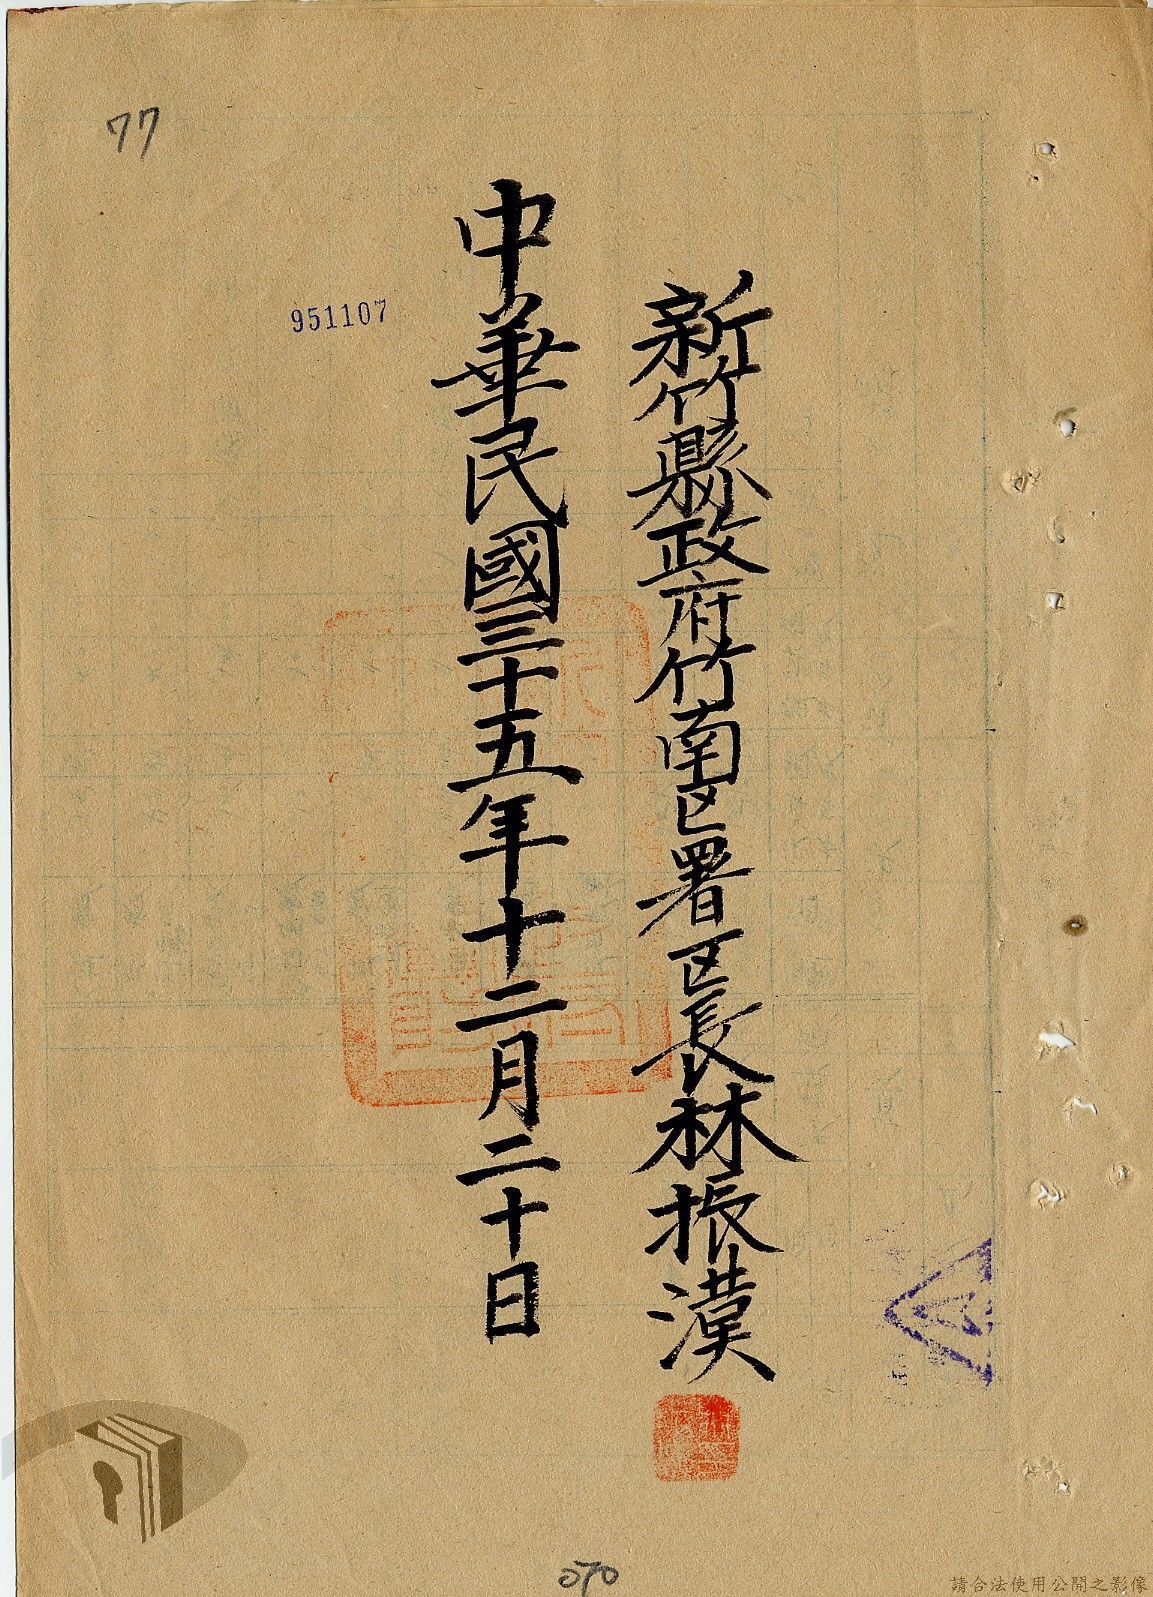 77
新竹縣政府竹南区署区長林振漢
中華民國三十五年十二月二十日
951107
070
請合法使用公開之影像